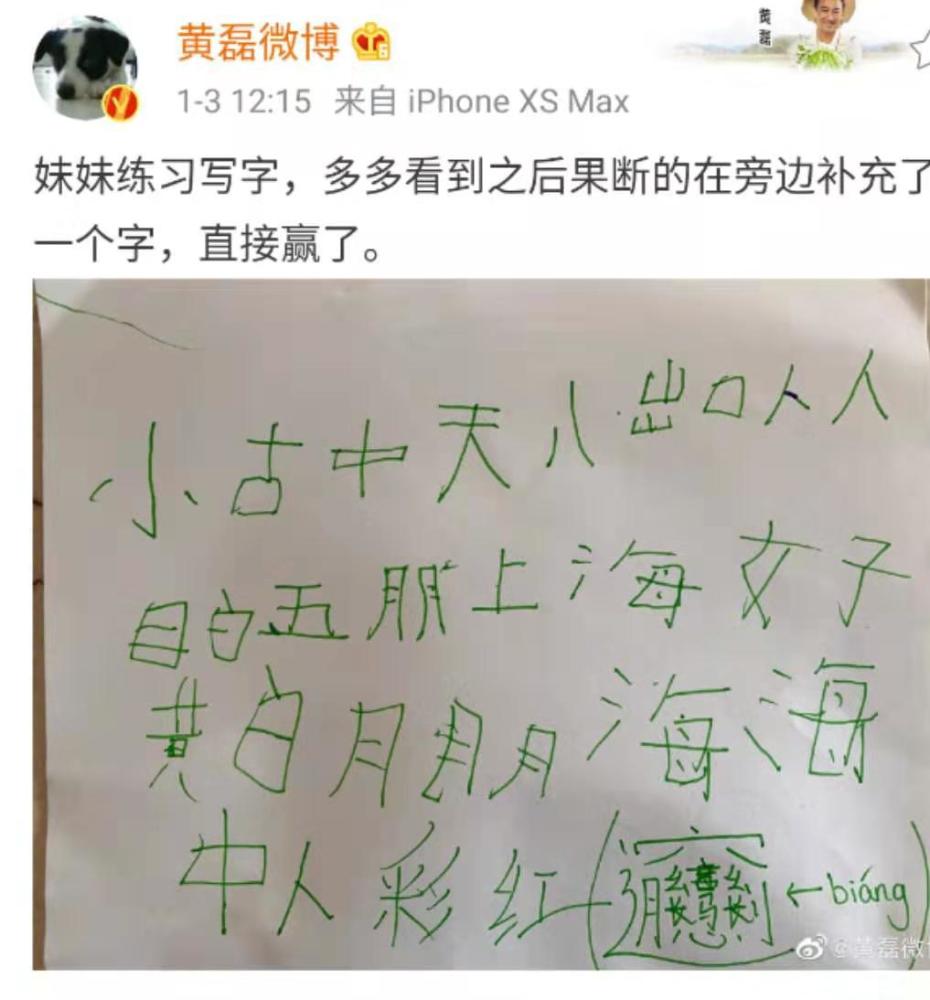 黄磊微博
黄磊
1-3 12:15 来自 iPhone XS Max
妹妹练习写字，多多看到之后果断的在旁边补充了
一个字，直接赢了。
小古中天八出口人人
目白五朋上海女子
黄白月朋月海海
中人彩红(𰻝←biáng)
@黄磊微博